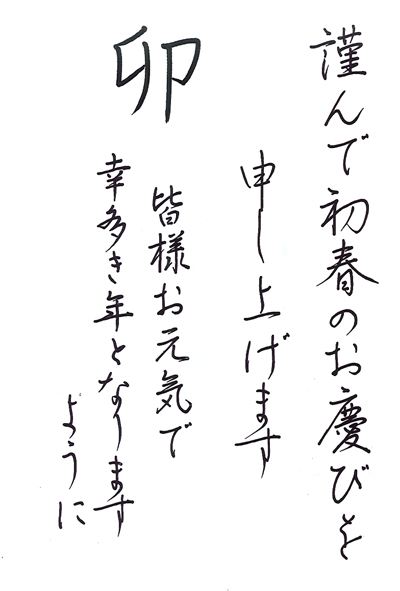 謹んで初春のお慶びを
申し上げます
卯
皆様お元気で
幸多き年となります
ように